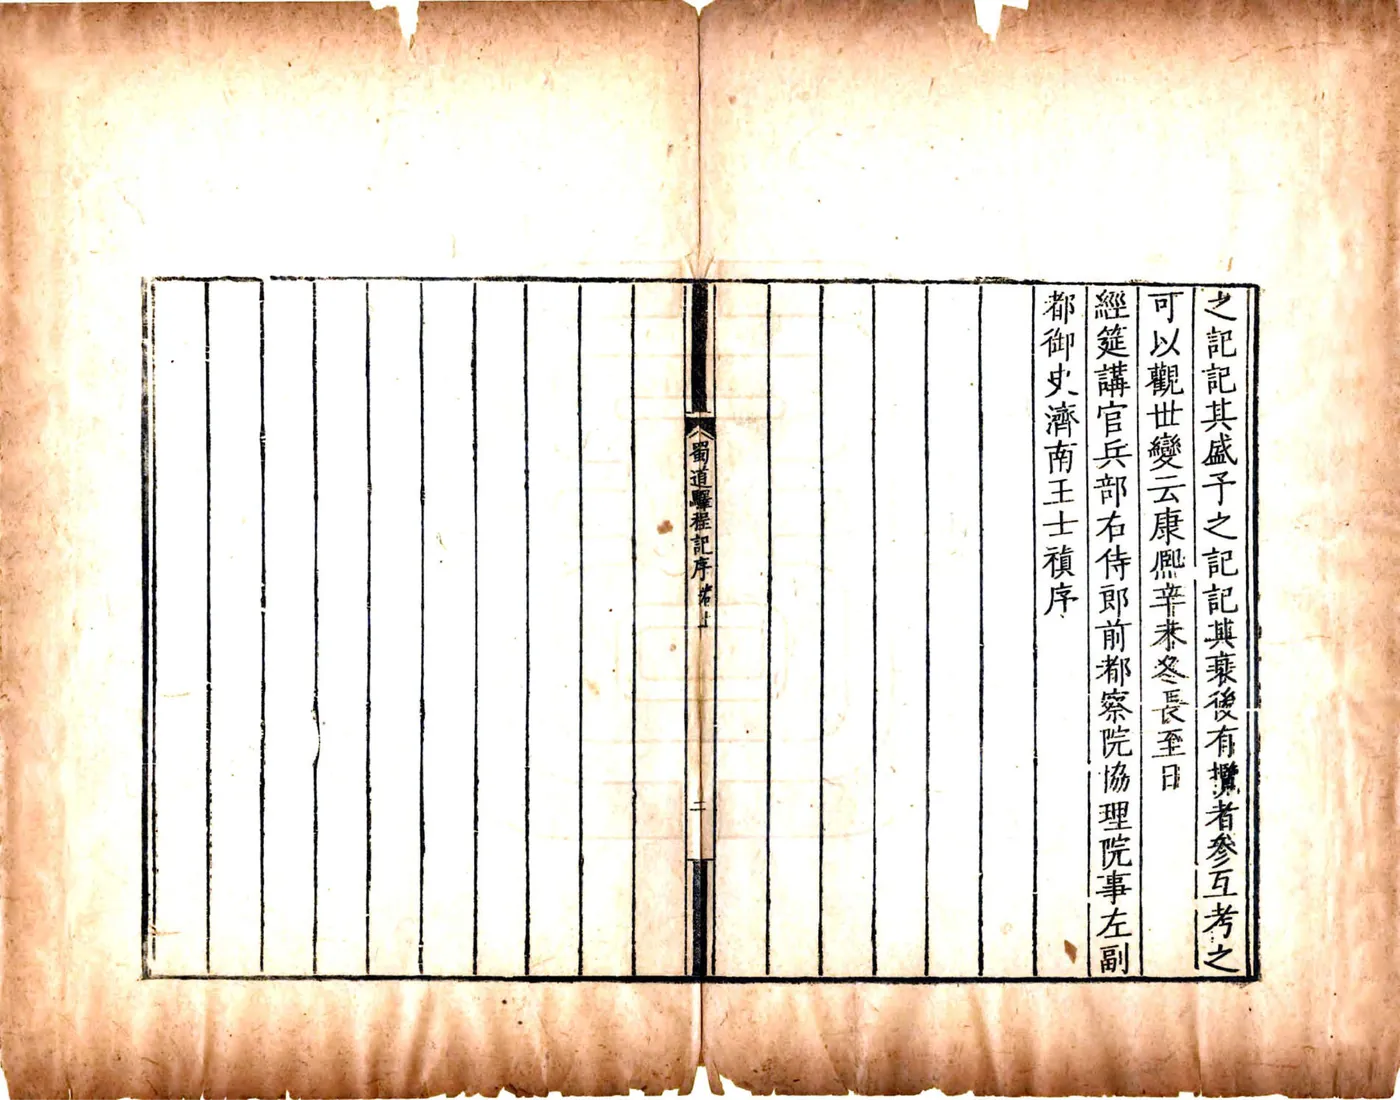 之記記其盛予之記記其衰後有攬者參互考之
可以觀世變云康熙辛未冬長至日
經筵講官兵部右侍郎前都察院協理院事左副
都御史濟南王士禛序
蜀道驛程記序 卷上
二